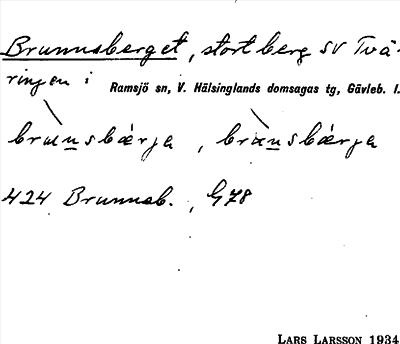 Brunnsberget, stort berg SV Tvä-
ringen i Ramsjö sn, V. Hälsinglands domsagas tg, Gävleb. l.
brùnsbærja, brùnsbærja
424 Brunnsb., G78
LARS LARSSON 1934